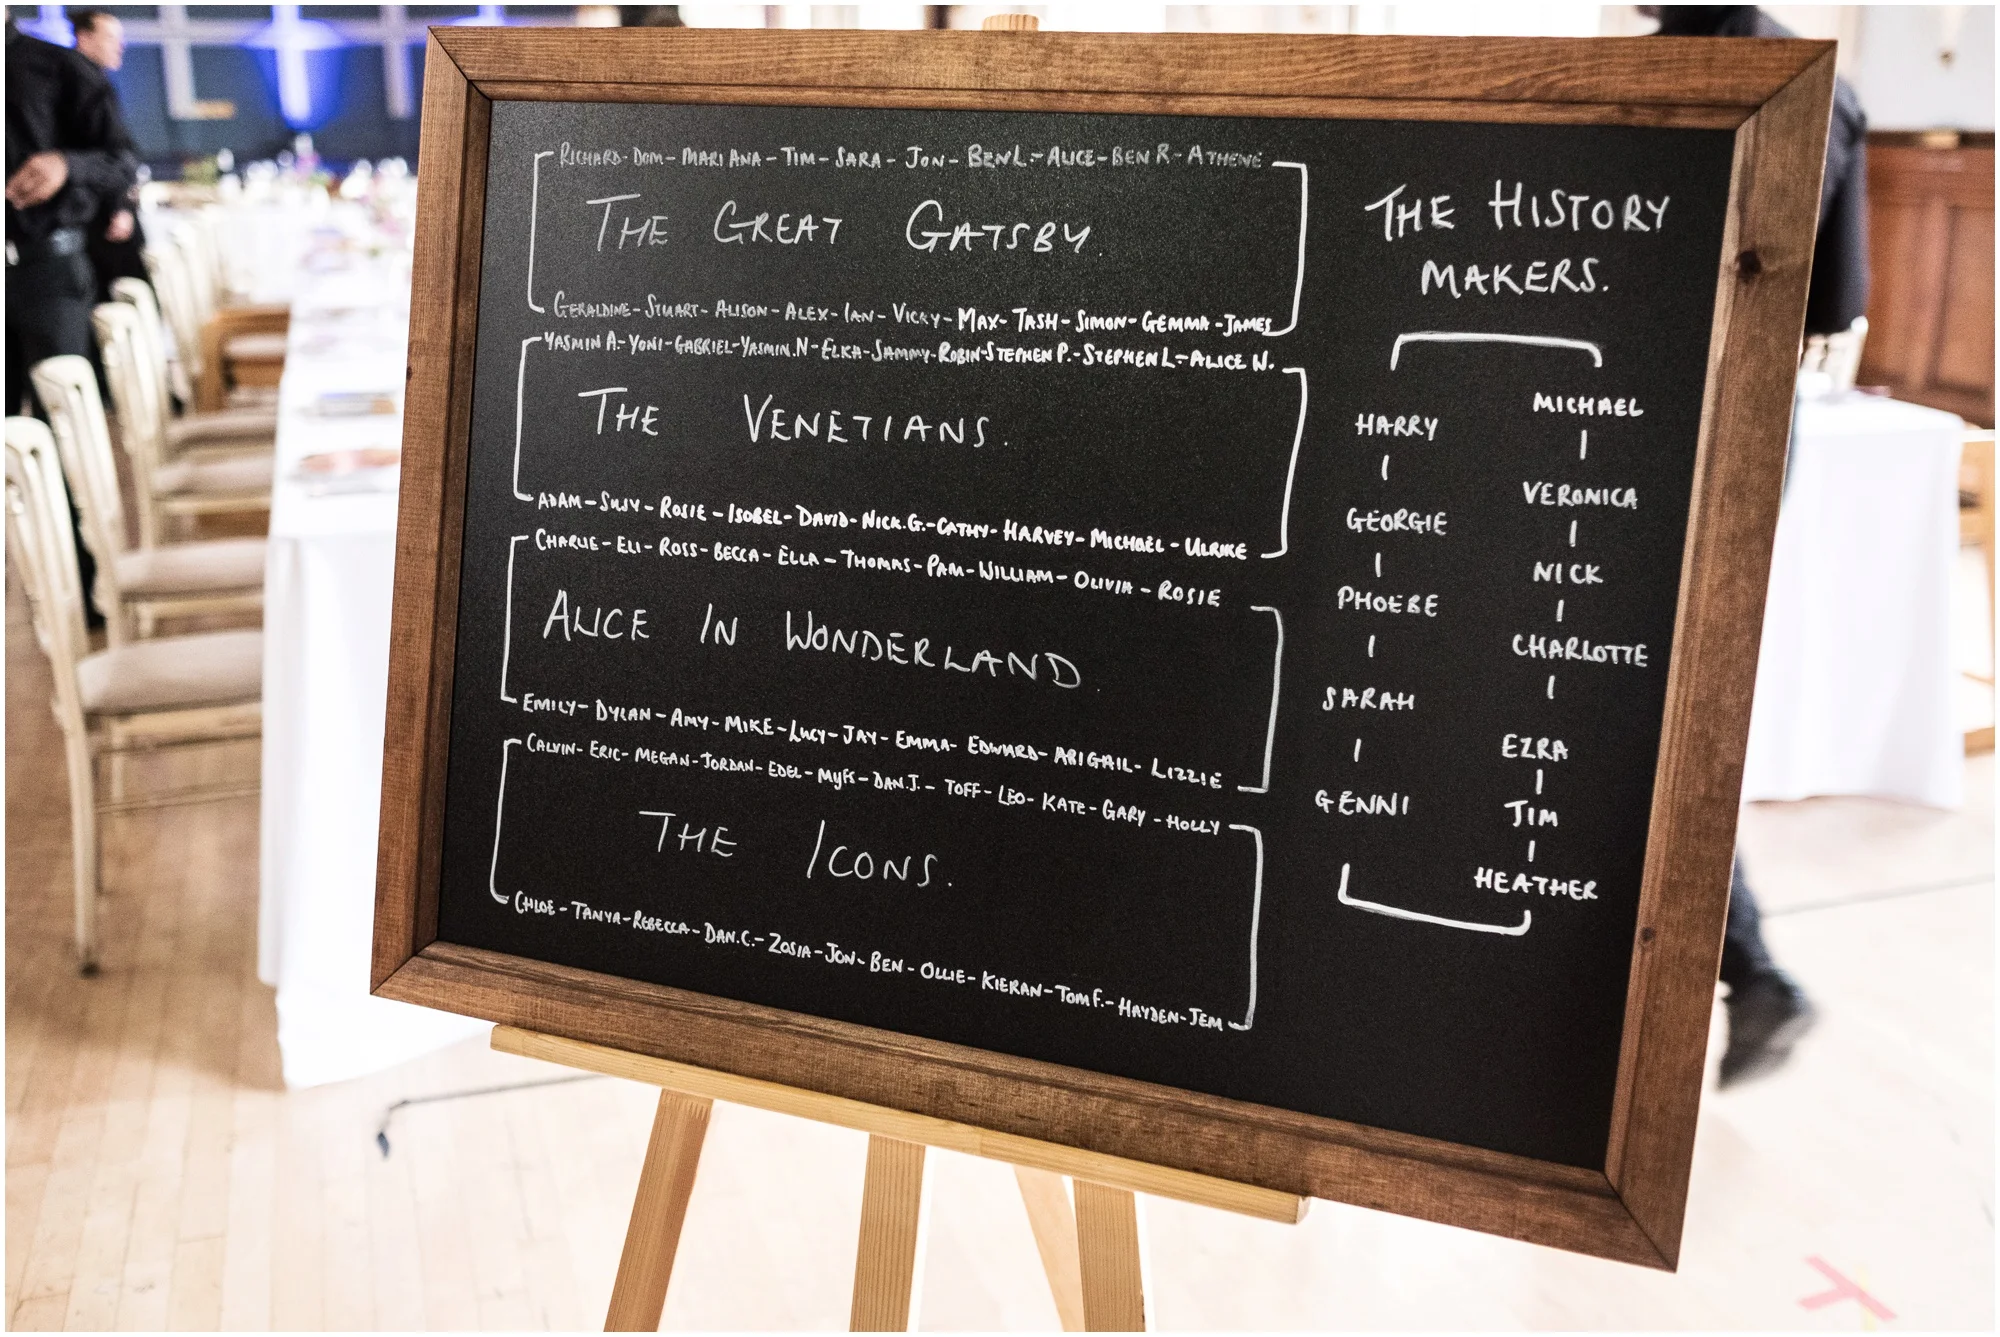 RICHARD - DOM - MARIANA - TIM - SARA - JON - BEN L - ALICE - BEN R - ATHENE
THE GREAT GATSBY.
GERALDINE - STUART - ALISON - ALEX - IAN - VICKY - MAX - TASH - SIMON - GEMMA - JAMES
YASMIN A. - YONI - GABRIEL - YASMIN.N - ELKA - SAMMY - ROBIN - STEPHEN P. - STEPHEN L - ALICE N.
THE VENETIANS.
ADAM - SUSY - ROSIE - ISOBEL - DAVID - NICK.G. - CATHY - HARVEY - MICHAEL - ULRIKE
CHARLIE - ELI - ROSS - BECCA - ELLA - THOMAS - PAM - WILLIAM - OLIVIA - ROSIE
ALICE IN WONDERLAND.
EMILY - DYLAN - AMY - MIKE - LUCY - JAY - EMMA - EDWARD - ABIGAIL - LIZZIE
CALVIN - ERIC - MEGAN - JORDAN - EDEL - MYFS - DAN.J. - TOFF - LEO - KATE - GARY - HOLLY
THE ICONS.
CHLOE - TANYA - REBECCA - DAN.C. - ZOSIA - JON - BEN - OLLIE - KIERAN - TOM F. - HAYDEN - JEM
THE HISTORY
MAKERS.
HARRY
GEORGIE
PHOEBE
SARAH
GENNI
MICHAEL
VERONICA
NICK
CHARLOTTE
EZRA
JIM
HEATHER